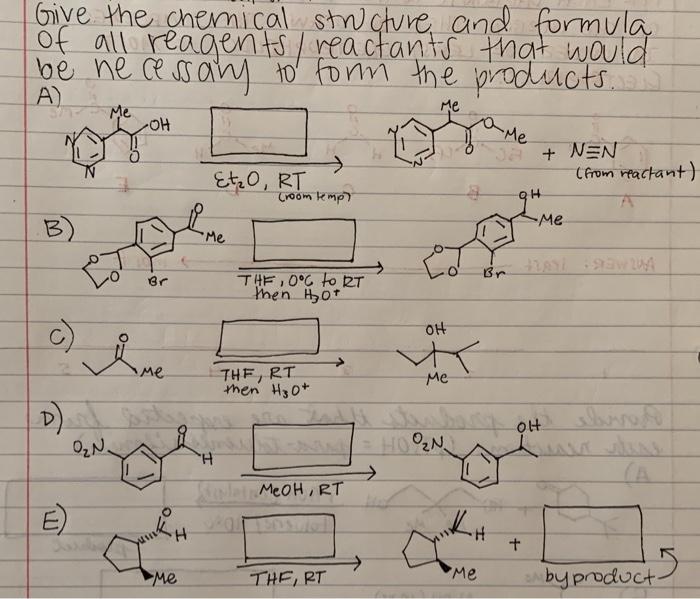 Give the chemical structure and formula
of all reagents/reactants that would
be necessary to form the products.
A)
Me
OH
O
N
N
Et₂O, RT
(room temp)
Me
O
Me
O
N
N
+ N≡N
(from reactant)
B)
O
Me
O
O
Br
THF, 0°C to RT
then H₃O⁺
OH
Me
O
O
Br
C)
O
Me
THF, RT
then H₃O⁺
OH
Me
D)
O₂N
O
H
MeOH, RT
O₂N
OH
E)
O
H
Me
THF, RT
H
Me
+
byproduct